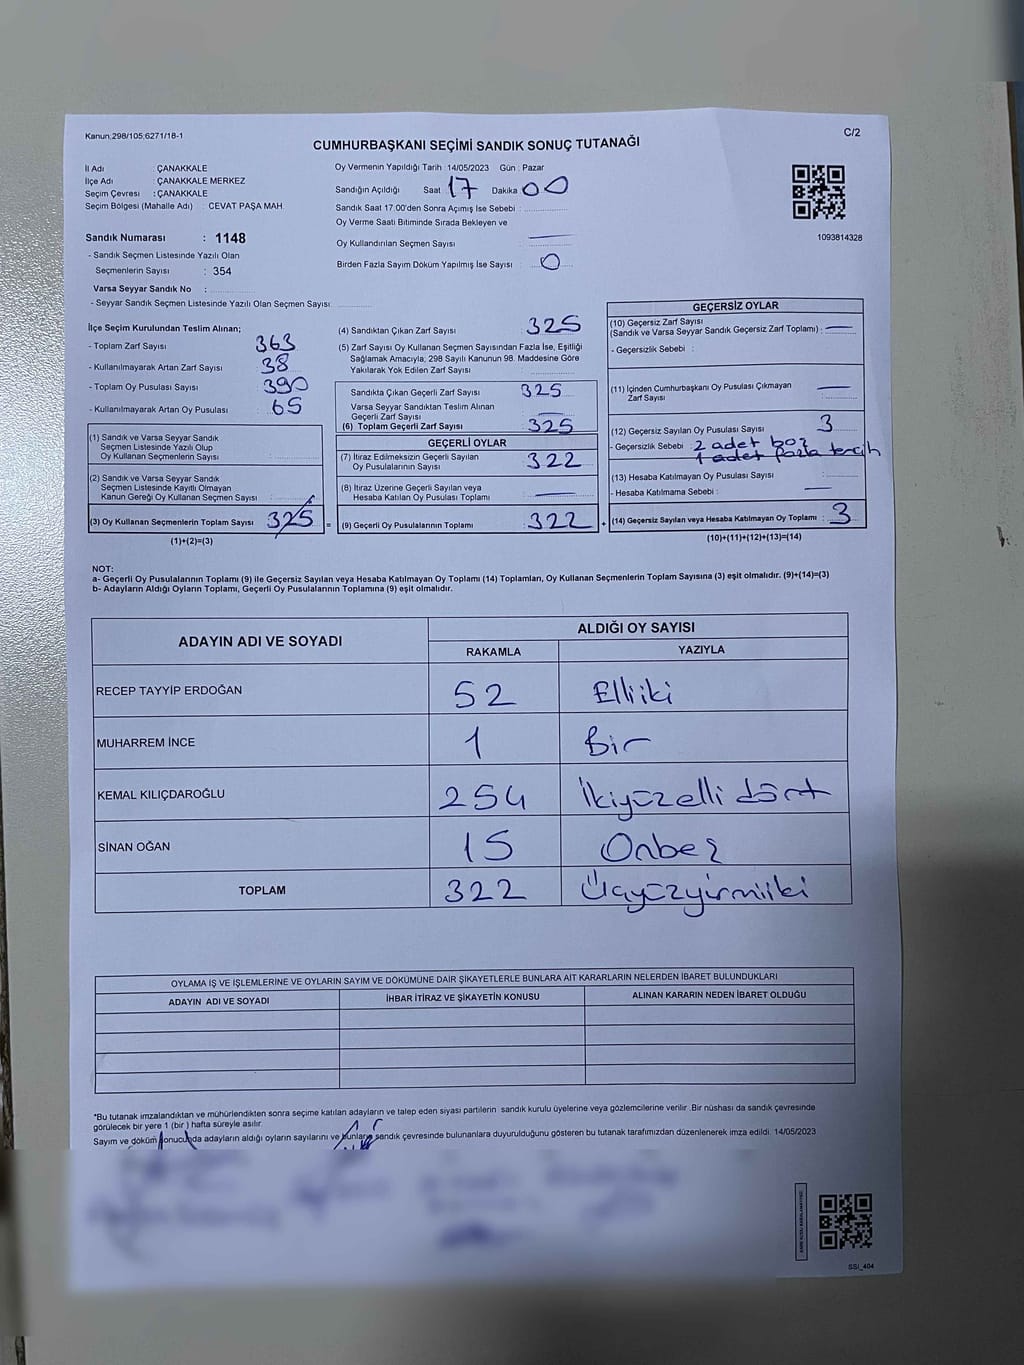 Kanun:298/105;6271/18-1
C/2
CUMHURBAŞKANI SEÇİMİ SANDIK SONUÇ TUTANAĞI
İl Adı : ÇANAKKALE
İlçe Adı : ÇANAKKALE MERKEZ
Seçim Çevresi : ÇANAKKALE
Seçim Bölgesi (Mahalle Adı) : CEVAT PAŞA MAH.
Oy Vermenin Yapıldığı Tarih : 14/05/2023 Gün : Pazar
Sandığın Açıldığı Saat 17 Dakika 00
Sandık Saat 17:00'den Sonra Açımış İse Sebebi :
Oy Verme Saati Bitiminde Sırada Bekleyen ve
Oy Kullandırılan Seçmen Sayısı : —
Birden Fazla Sayım Döküm Yapılmış İse Sayısı : 0
1093814328
Sandık Numarası : 1148
- Sandık Seçmen Listesinde Yazılı Olan
Seçmenlerin Sayısı : 354
Varsa Seyyar Sandık No :
- Seyyar Sandık Seçmen Listesinde Yazılı Olan Seçmen Sayısı:
İlçe Seçim Kurulundan Teslim Alınan;
- Toplam Zarf Sayısı : 363
- Kullanılmayarak Artan Zarf Sayısı : 38
- Toplam Oy Pusulası Sayısı : 390
- Kullanılmayarak Artan Oy Pusulası : 65
(1) Sandık ve Varsa Seyyar Sandık
Seçmen Listesinde Yazılı Olup
Oy Kullanan Seçmenlerin Sayısı :
(2) Sandık ve Varsa Seyyar Sandık
Seçmen Listesinde Kayıtlı Olmayan
Kanun Gereği Oy Kullanan Seçmen Sayısı :
(3) Oy Kullanan Seçmenlerin Toplam Sayısı : 325
(1)+(2)=(3)
(4) Sandıktan Çıkan Zarf Sayısı : 325
(5) Zarf Sayısı Oy Kullanan Seçmen Sayısından Fazla İse, Eşitliği
Sağlamak Amacıyla; 298 Sayılı Kanunun 98. Maddesine Göre
Yakılarak Yok Edilen Zarf Sayısı :
Sandıkta Çıkan Geçerli Zarf Sayısı : 325
Varsa Seyyar Sandıktan Teslim Alınan
Geçerli Zarf Sayısı : —
(6) Toplam Geçerli Zarf Sayısı : 325
GEÇERLİ OYLAR
(7) İtiraz Edilmeksizin Geçerli Sayılan
Oy Pusulalarının Sayısı : 322
(8) İtiraz Üzerine Geçerli Sayılan veya
Hesaba Katılan Oy Pusulası Toplamı : —
= (9) Geçerli Oy Pusulalarının Toplamı : 322
GEÇERSİZ OYLAR
(10) Geçersiz Zarf Sayısı
(Sandık ve Varsa Seyyar Sandık Geçersiz Zarf Toplamı) : —
- Geçersizlik Sebebi :
(11) İçinden Cumhurbaşkanı Oy Pusulası Çıkmayan
Zarf Sayısı : —
(12) Geçersiz Sayılan Oy Pusulası Sayısı : 3
- Geçersizlik Sebebi : 2 adet boş
1 adet fazla tercih
(13) Hesaba Katılmayan Oy Pusulası Sayısı :
- Hesaba Katılmama Sebebi : —
+ (14) Geçersiz Sayılan veya Hesaba Katılmayan Oy Toplamı : 3
(10)+(11)+(12)+(13)=(14)
NOT:
a- Geçerli Oy Pusulalarının Toplamı (9) ile Geçersiz Sayılan veya Hesaba Katılmayan Oy Toplamı (14) Toplamları, Oy Kullanan Seçmenlerin Toplam Sayısına (3) eşit olmalıdır. (9)+(14)=(3)
b- Adayların Aldığı Oyların Toplamı, Geçerli Oy Pusulalarının Toplamına (9) eşit olmalıdır.
ADAYIN ADI VE SOYADI
ALDIĞI OY SAYISI
RAKAMLA YAZIYLA
RECEP TAYYİP ERDOĞAN 52 Elliiki
MUHARREM İNCE 1 Bir
KEMAL KILIÇDAROĞLU 254 İkiyüzelli dört
SİNAN OĞAN 15 Onbeş
TOPLAM 322 Üçyüzyirmiiki
OYLAMA İŞ VE İŞLEMLERİNE VE OYLARIN SAYIM VE DÖKÜMÜNE DAİR ŞİKAYETLERLE BUNLARA AİT KARARLARIN NELERDEN İBARET BULUNDUKLARI
ADAYIN ADI VE SOYADI İHBAR İTİRAZ VE ŞİKAYETİN KONUSU ALINAN KARARIN NEDEN İBARET OLDUĞU
*Bu tutanak imzalandıktan ve mühürlendikten sonra seçime katılan adayların ve talep eden siyasi partilerin sandık kurulu üyelerine veya gözlemcilerine verilir .Bir nüshası da sandık çevresinde
görülecek bir yere 1 (bir ) hafta süreyle asılır.
Sayım ve döküm sonucunda adayların aldığı oyların sayılarını ve bunların sandık çevresinde bulunanlara duyurulduğunu gösteren bu tutanak tarafımızdan düzenlenerek imza edildi. 14/05/2023
SSI_404